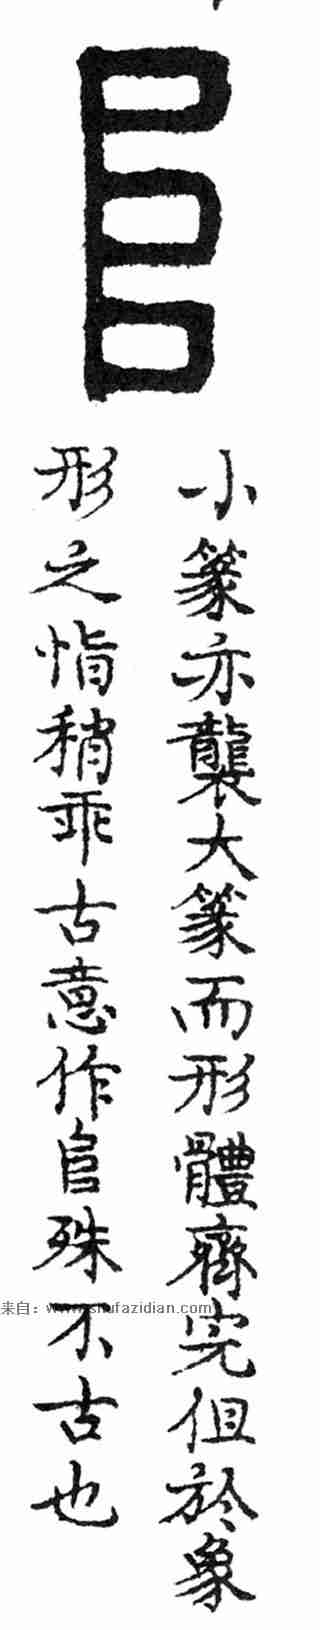 𨸏
小篆亦襲大篆而形體齊完但於象
形之恉稍乖古意作𨸏殊不古也
来自：www.shufazidian.com